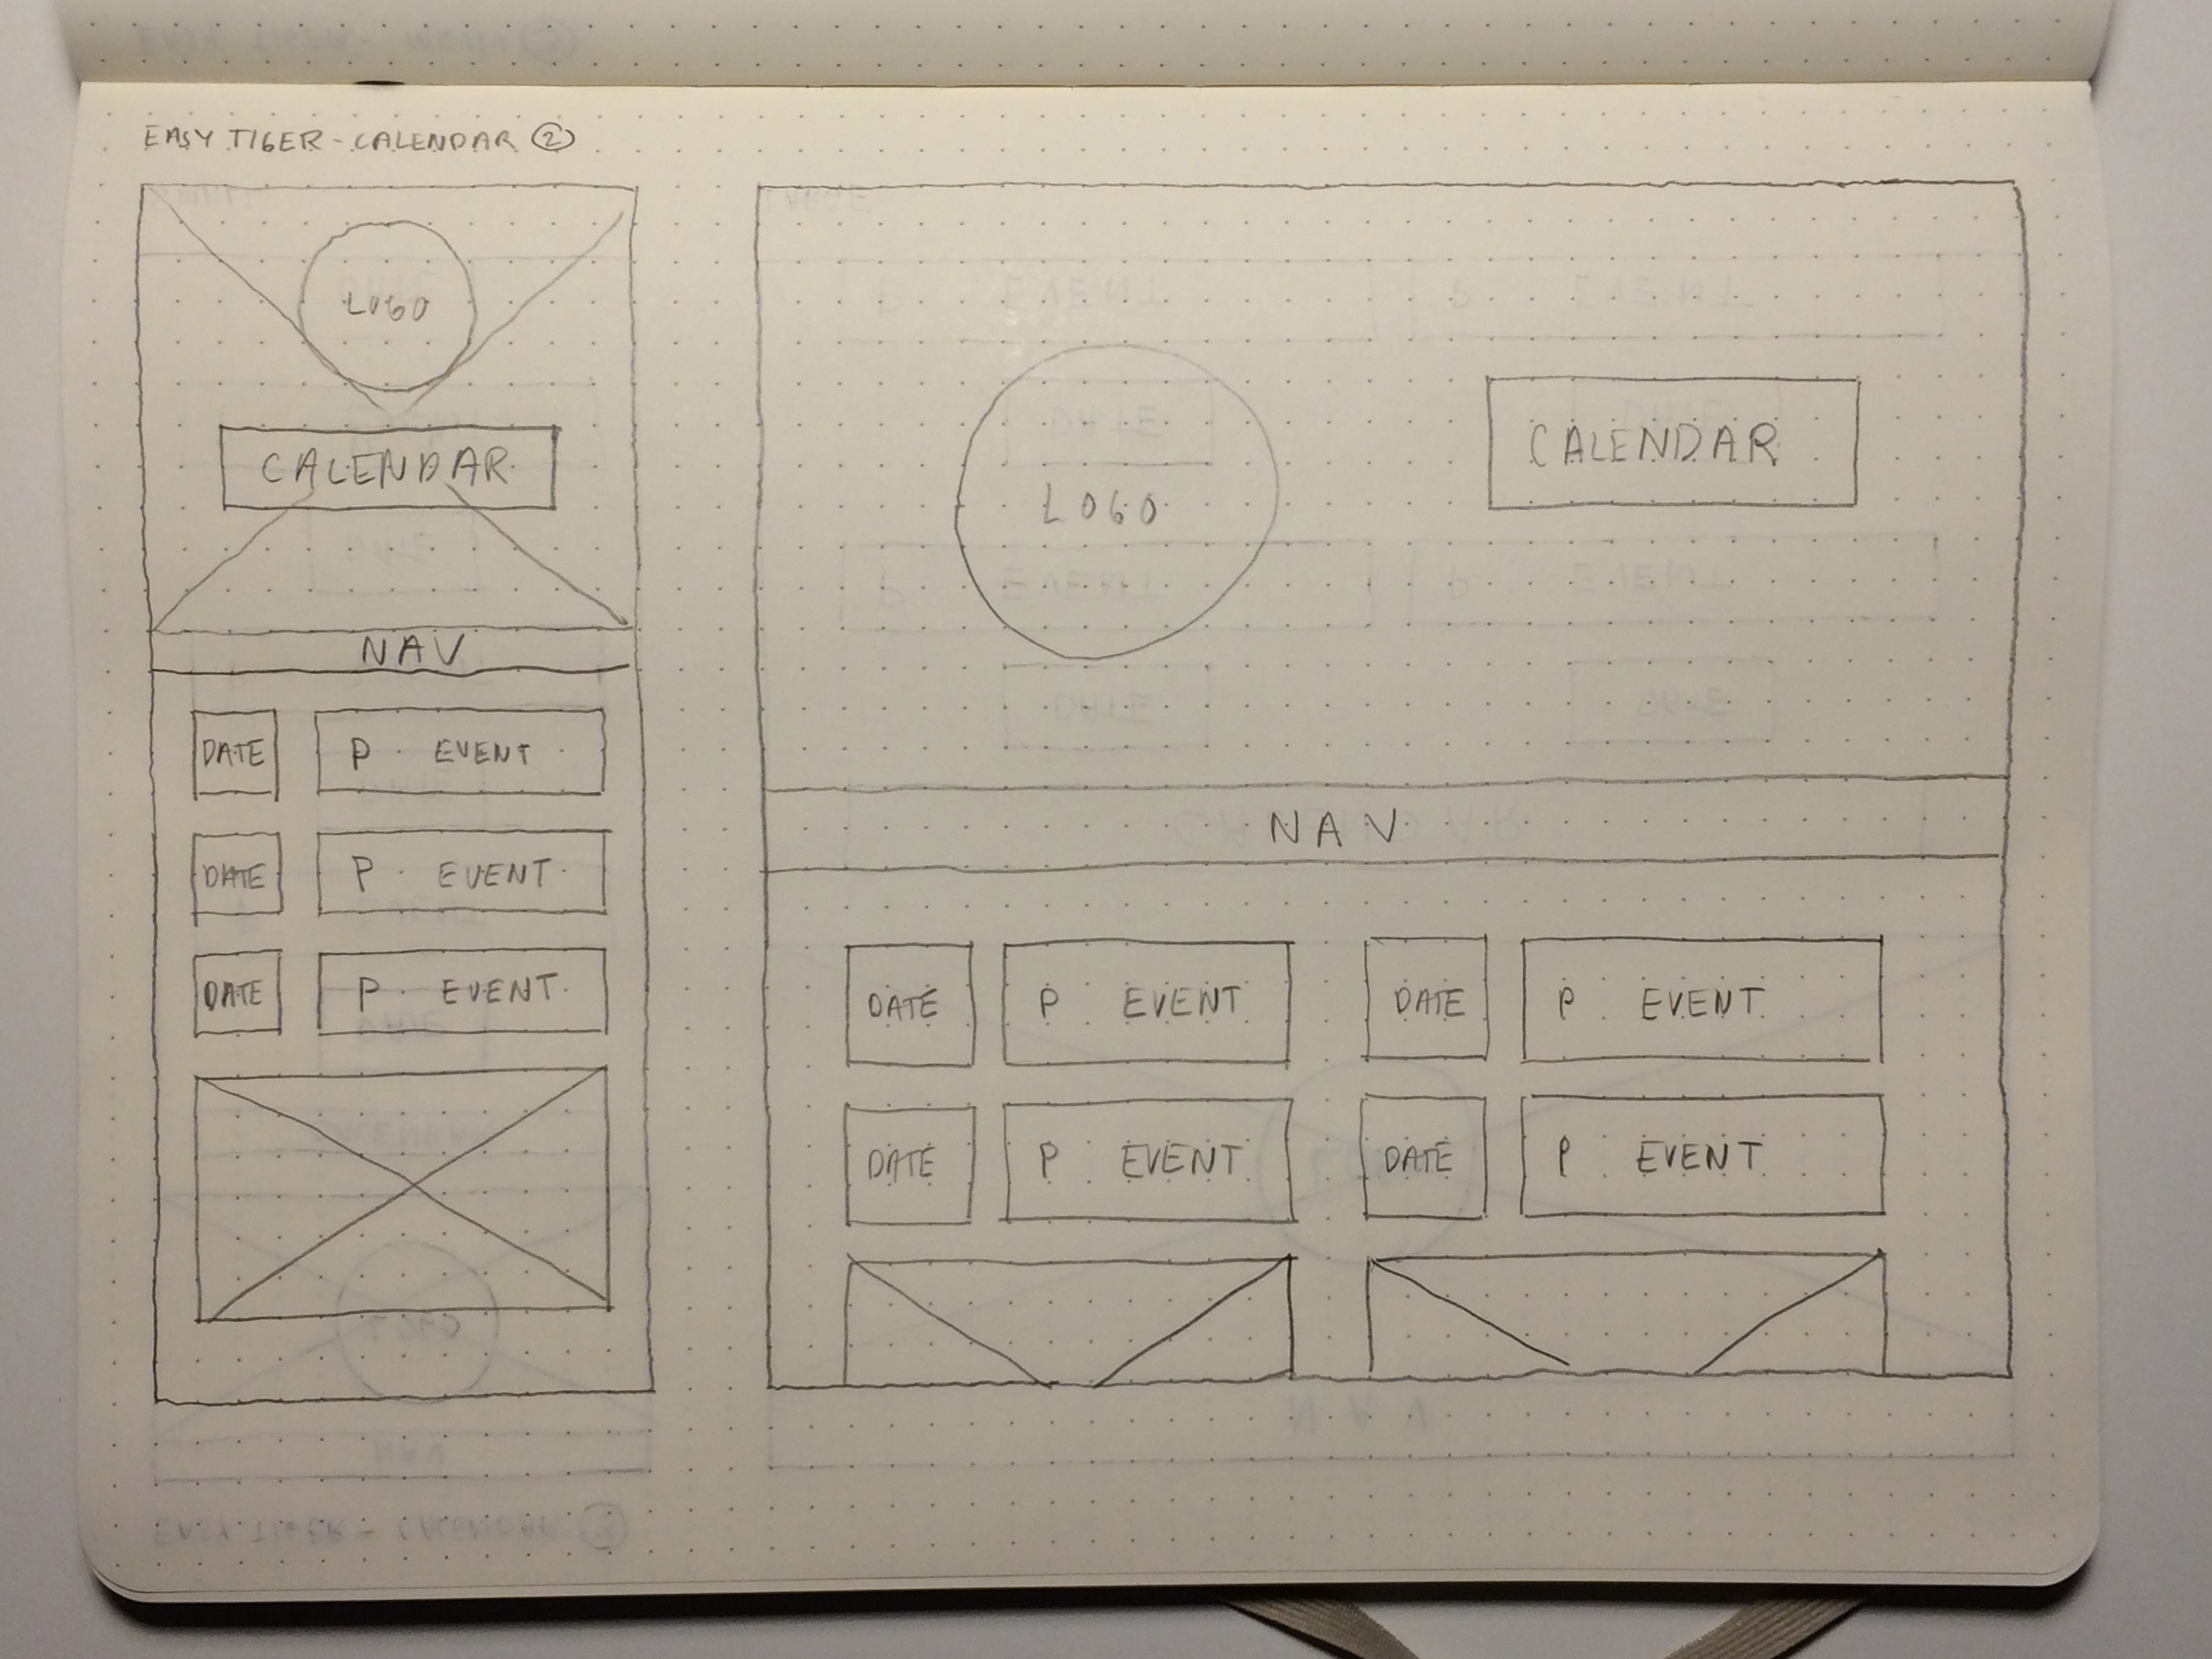 EASY TIGER - CALENDAR ②
LOGO
CALENDAR
NAV
DATE P EVENT
DATE P EVENT
DATE P EVENT
LOGO
CALENDAR
NAV
DATE P EVENT DATE P EVENT
DATE P EVENT DATE P EVENT